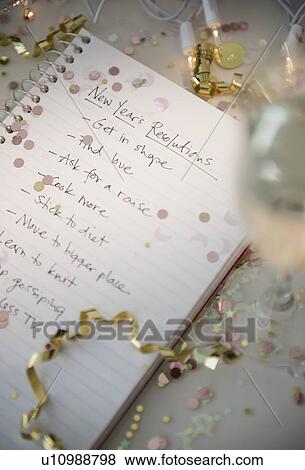 New Year's Resolutions
- Get in shape
- Find love
- Ask for a raise
- Cook more
- Stick to diet
- Move to bigger place
Learn to knit
gossiping
less TV
FOTOSEARCH
u10988798 www.fotosearch.com